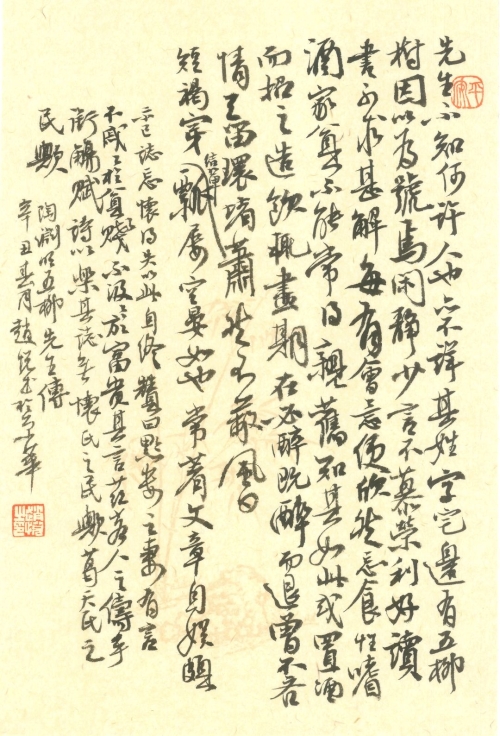 先生不知何許人也亦不詳其姓字宅邊有五柳
樹因以為號焉閑静少言不慕榮利好讀
書不求甚解每有會意便欣然忘食性嗜
酒家貧不能常得親舊知其如此或置酒
而招之造飲輒盡期在必醉既醉而退曾不吝
情去留環堵蕭然不蔽風日
短褐穿結簞瓢屢空晏如也常著文章自娱頗
示己誌忘懷得失以此自終贊曰黔婁之妻有言
不戚戚於貧賤不汲汲於富貴其言茲若人之儔乎
銜觴賦詩以樂其誌無懷氏之民歟葛天氏之
民歟
陶淵明五柳先生傳
辛丑春月趙書於華